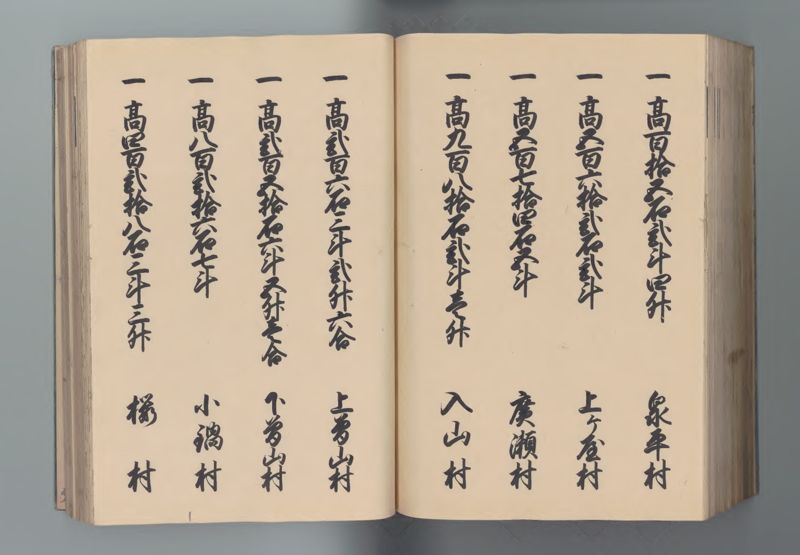 一 高百拾五石弐斗四升 泉平村
一 高五百六拾弐石弐斗 上ケ屋村
一 高五百七拾四石五斗 廣瀬村
一 高九百八拾石弐斗壱升 入山村
一 高弐百六石三斗弐升六合 上曽山村
一 高弐百五拾石六斗五升壱合 下曽山村
一 高八百弐拾六石七斗 小鍋村
一 高四百弐拾八石三斗三升 桜村